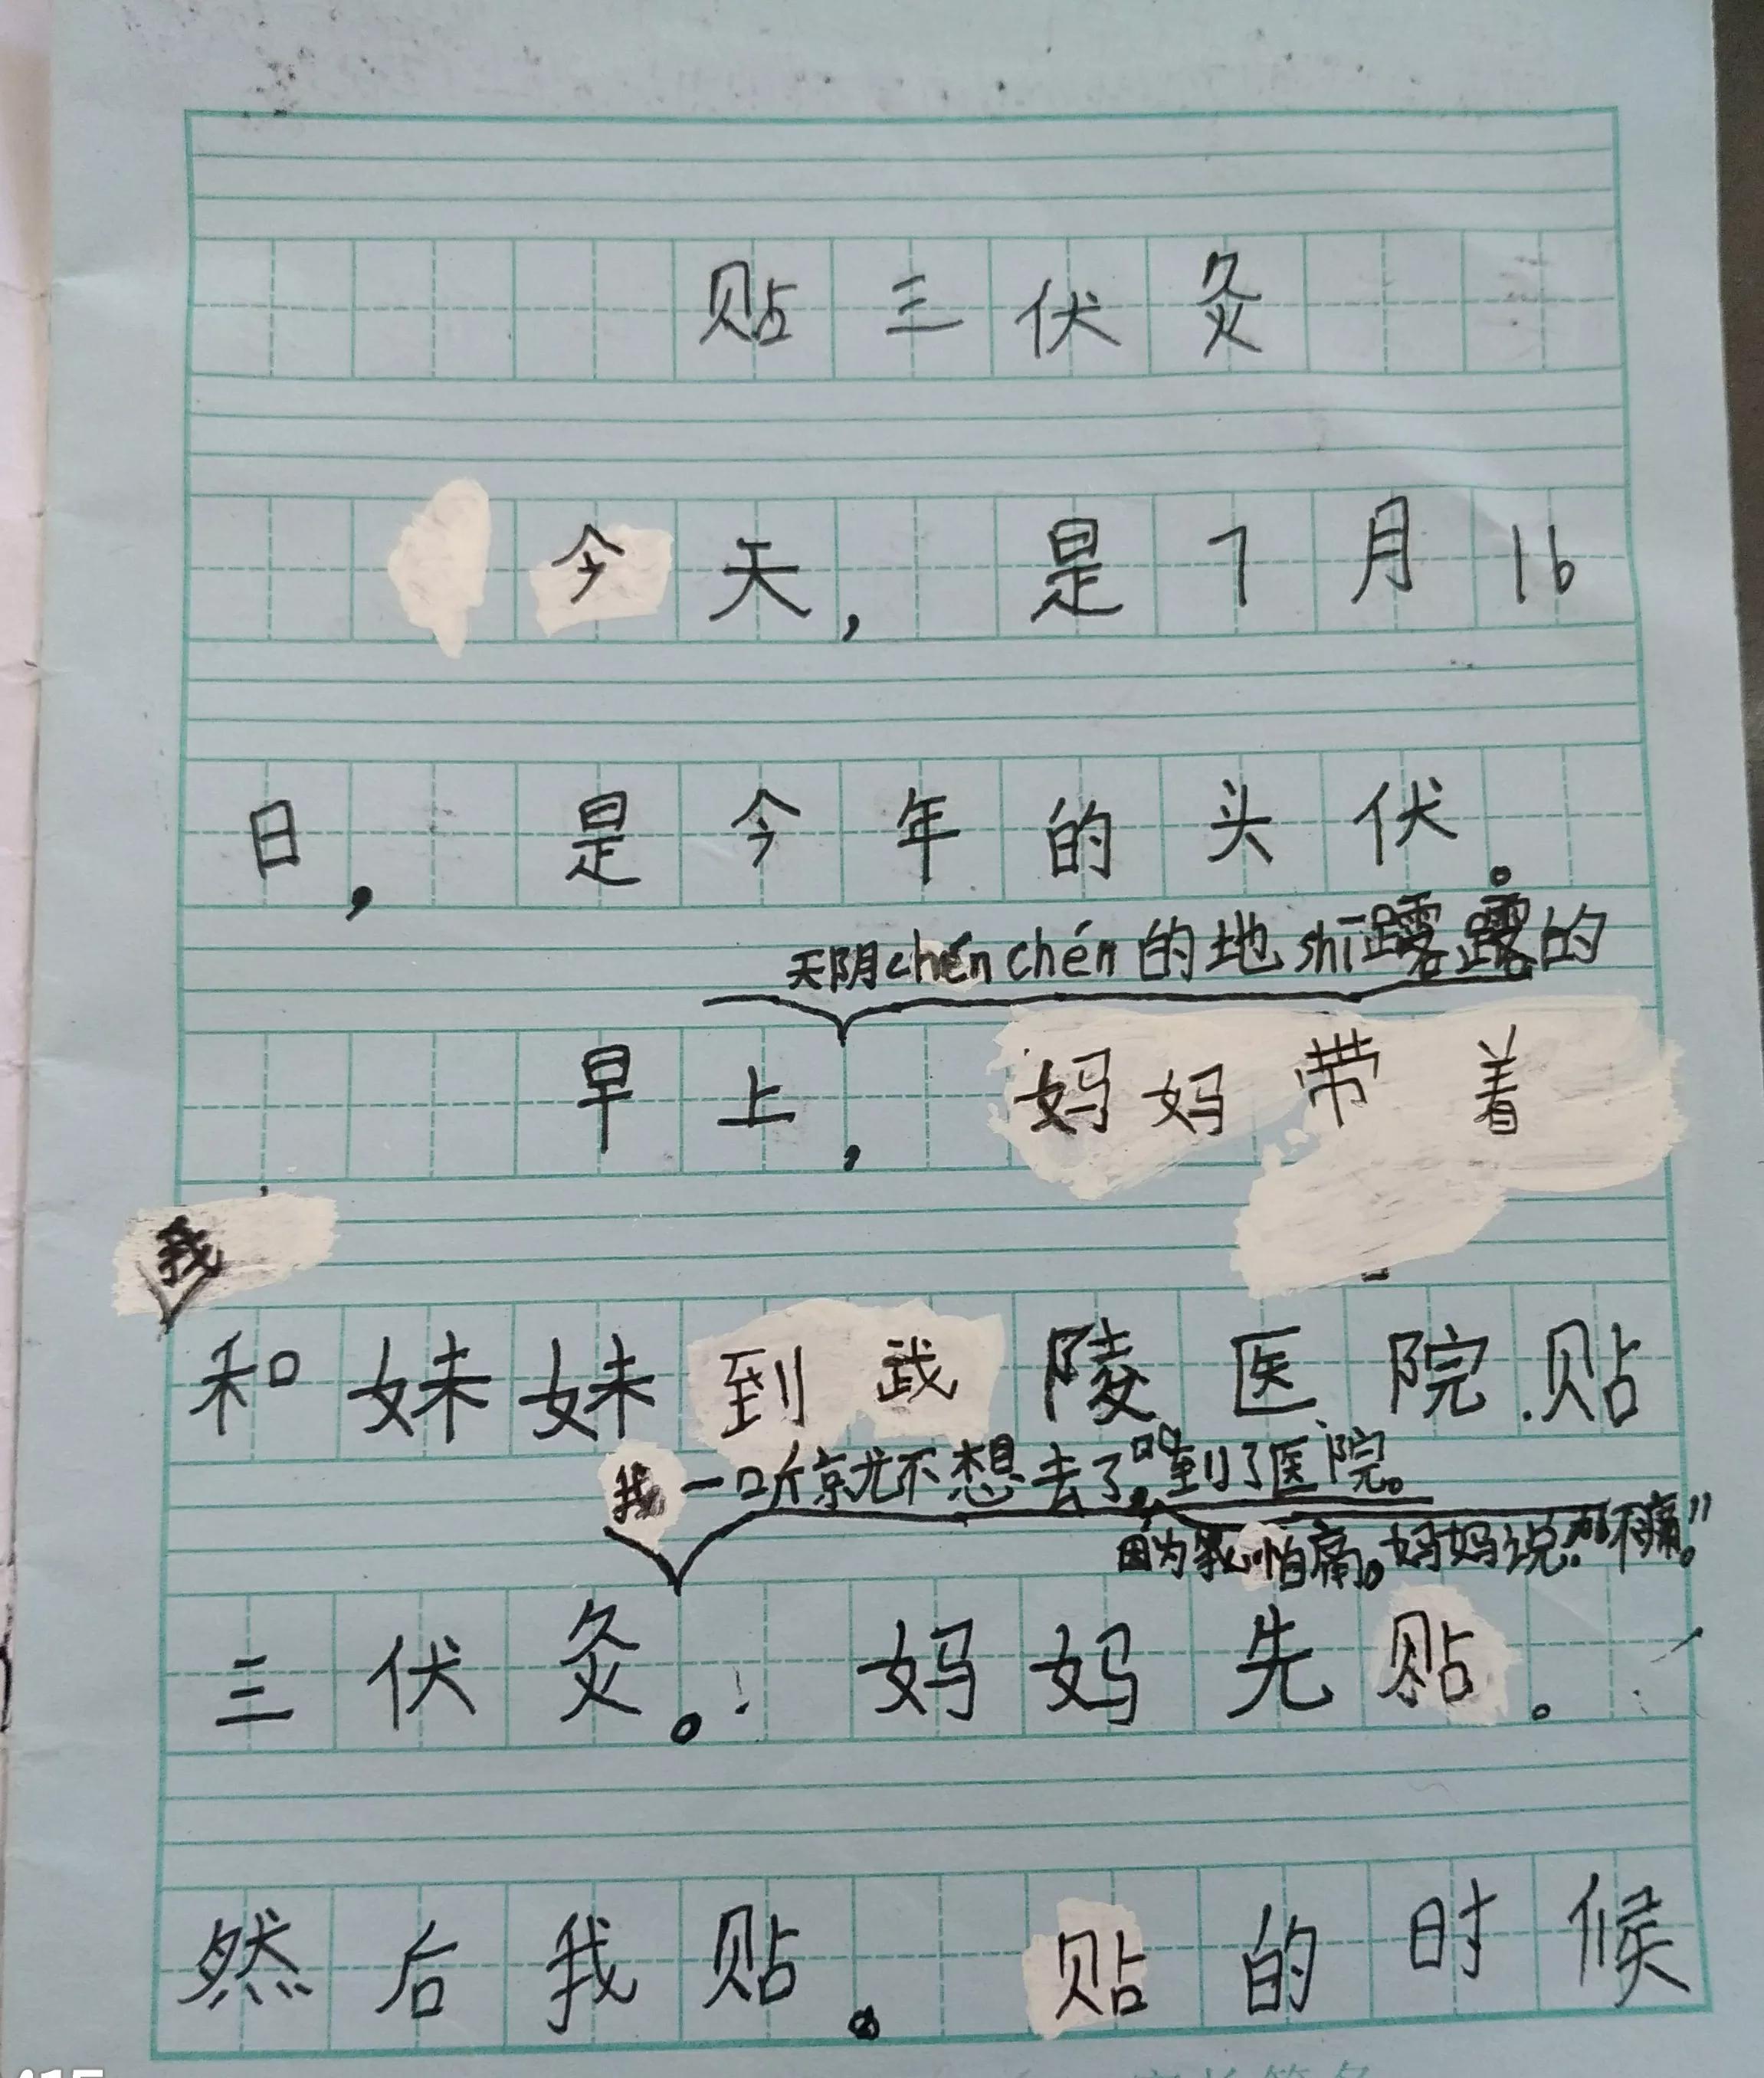 贴三伏灸
今天，是7月16
日，是今年的头伏。
天阴chénchén的地shī露露的
早上，妈妈带着
我
和妹妹到武陵医院贴
我一听就不想去了，到了医院。
因为我怕痛。妈妈说：“不痛。”
三伏灸。妈妈先贴。
然后我贴。贴的时候